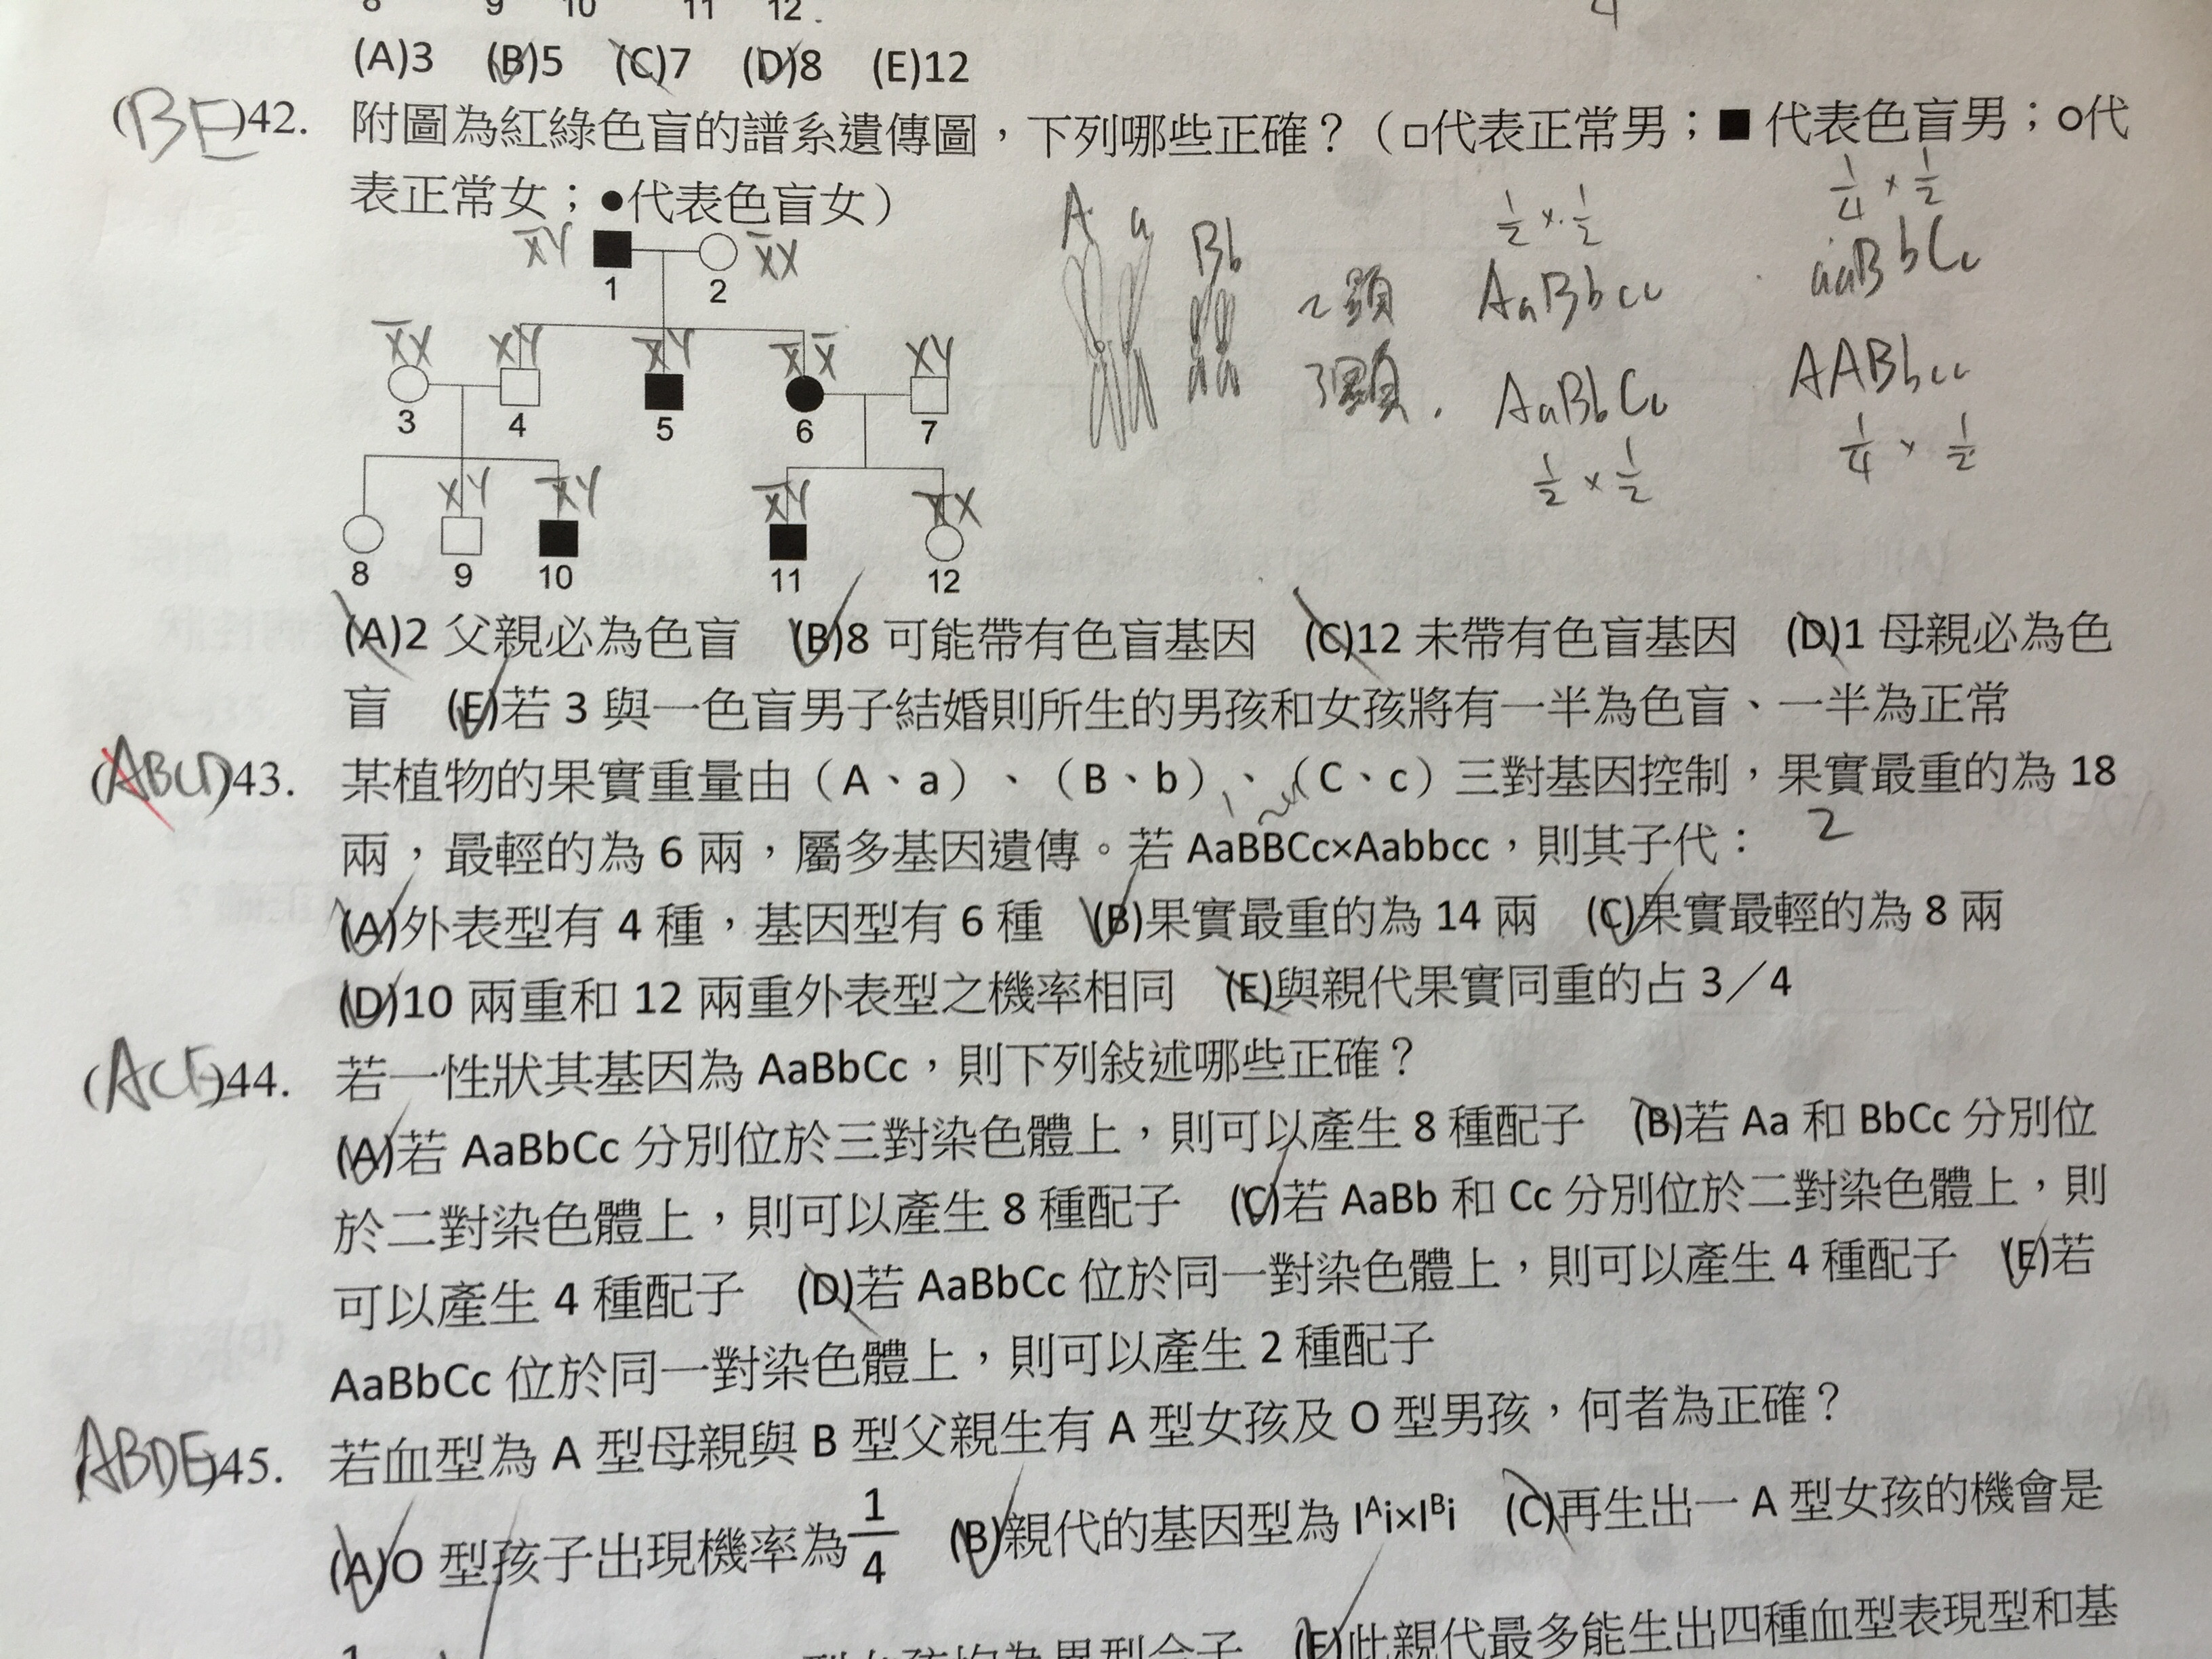 8 9 10 11 12
(A)3 (B)5 (C)7 (D)8 (E)12
(BE)42. 附圖為紅綠色盲的譜系遺傳圖，下列哪些正確？（□代表正常男；■ 代表色盲男；○代
表正常女；●代表色盲女）
A a Bb
1/2 × 1/2
1/4 × 1/2
2顆 AaBbcc aaBbCc
3顆. AaBbCc AABbcc
1/2 × 1/2
1/4 × 1/2
X̄Y X̄X
1 2
X̄X XY X̄Y X̄X̄ XY
3 4 5 6 7
XY X̄Y X̄Y X̄X
8 9 10 11 12
(A)2 父親必為色盲 (B)8 可能帶有色盲基因 (C)12 未帶有色盲基因 (D)1 母親必為色
盲 (E)若 3 與一色盲男子結婚則所生的男孩和女孩將有一半為色盲、一半為正常
(ABCD)43. 某植物的果實重量由（A、a）、（B、b）、（C、c）三對基因控制，果實最重的為 18
兩，最輕的為 6 兩，屬多基因遺傳。若 AaBBCc×Aabbcc，則其子代： 2
(A)外表型有 4 種，基因型有 6 種 (B)果實最重的為 14 兩 (C)果實最輕的為 8 兩
(D)10 兩重和 12 兩重外表型之機率相同 (E)與親代果實同重的占 3／4
(ACE)44. 若一性狀其基因為 AaBbCc，則下列敍述哪些正確？
(A)若 AaBbCc 分別位於三對染色體上，則可以產生 8 種配子 (B)若 Aa 和 BbCc 分別位
於二對染色體上，則可以產生 8 種配子 (C)若 AaBb 和 Cc 分別位於二對染色體上，則
可以產生 4 種配子 (D)若 AaBbCc 位於同一對染色體上，則可以產生 4 種配子 (E)若
AaBbCc 位於同一對染色體上，則可以產生 2 種配子
(ABDE)45. 若血型為 A 型母親與 B 型父親生有 A 型女孩及 O 型男孩，何者為正確？
(A)O 型孩子出現機率為 1/4 (B)親代的基因型為 Iᴬi×Iᴮi (C)再生出一 A 型女孩的機會是
1 型女孩均為異型合子 (E)此親代最多能生出四種血型表現型和基